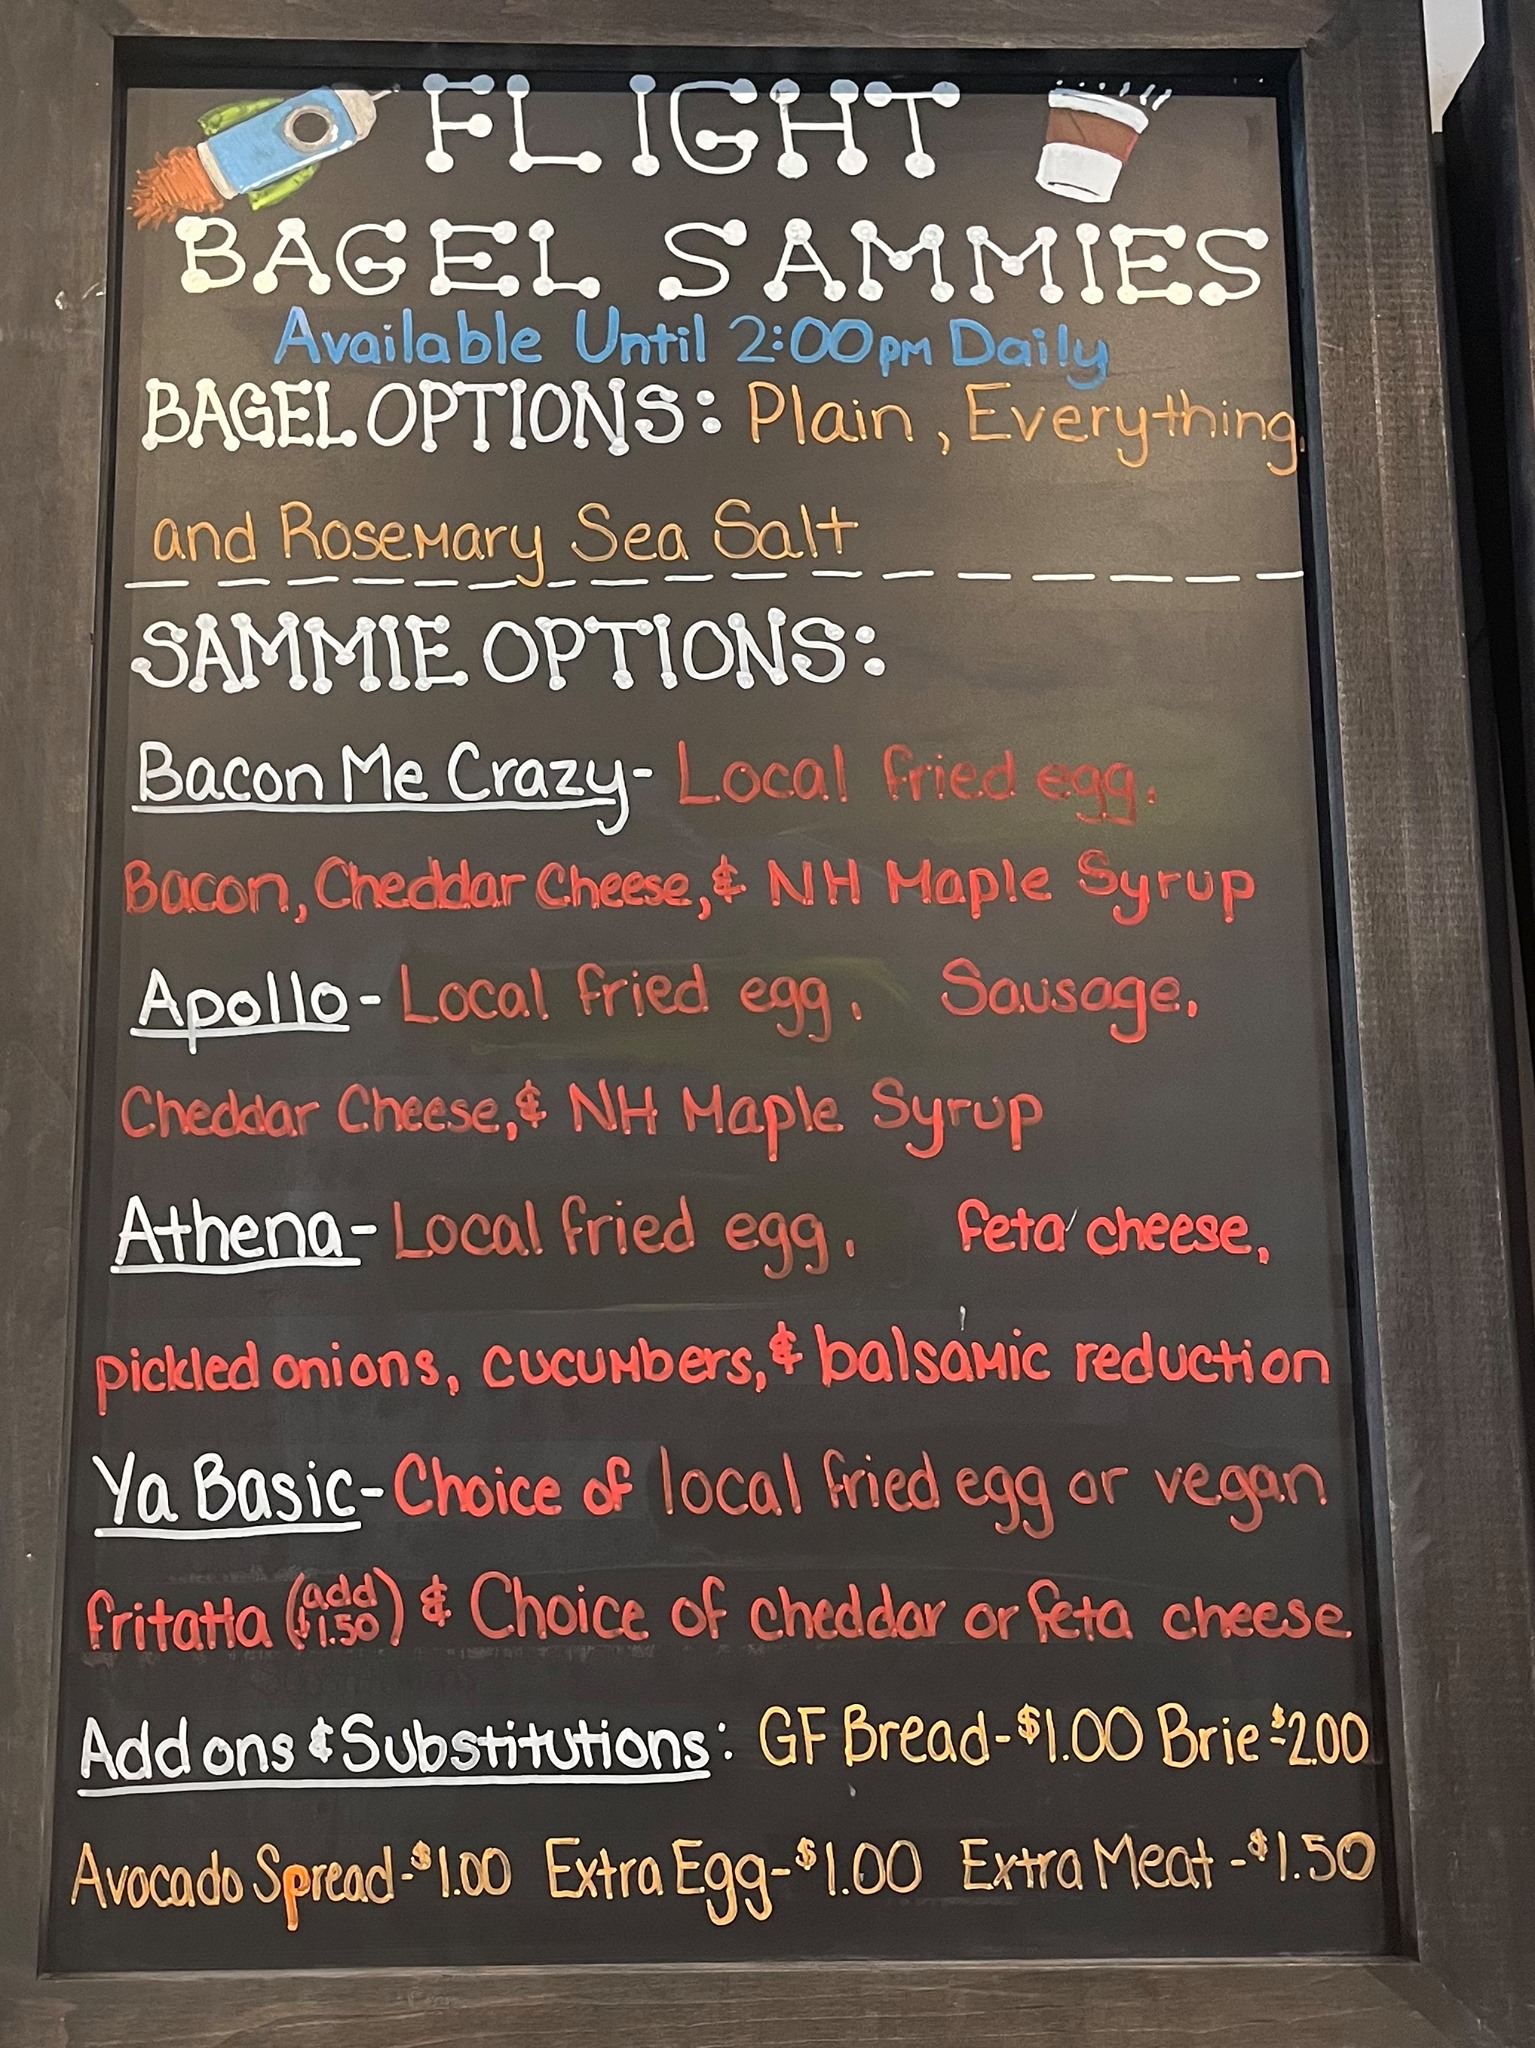 FLIGHT
BAGEL SAMMIES
Available Until 2:00pm Daily
BAGEL OPTIONS: Plain, Everything,
and Rosemary Sea Salt
SAMMIE OPTIONS:
Bacon Me Crazy- Local fried egg,
Bacon, Cheddar Cheese, & NH Maple Syrup
Apollo- Local fried egg, Sausage,
Cheddar Cheese, & NH Maple Syrup
Athena- Local fried egg, feta cheese,
pickled onions, cucumbers, & balsamic reduction
Ya Basic- Choice of local fried egg or vegan
fritatta (add $1.50) & Choice of cheddar or feta cheese
Add ons & Substitutions: GF Bread-$1.00 Brie-$2.00
Avocado Spread-$1.00 Extra Egg-$1.00 Extra Meat-$1.50